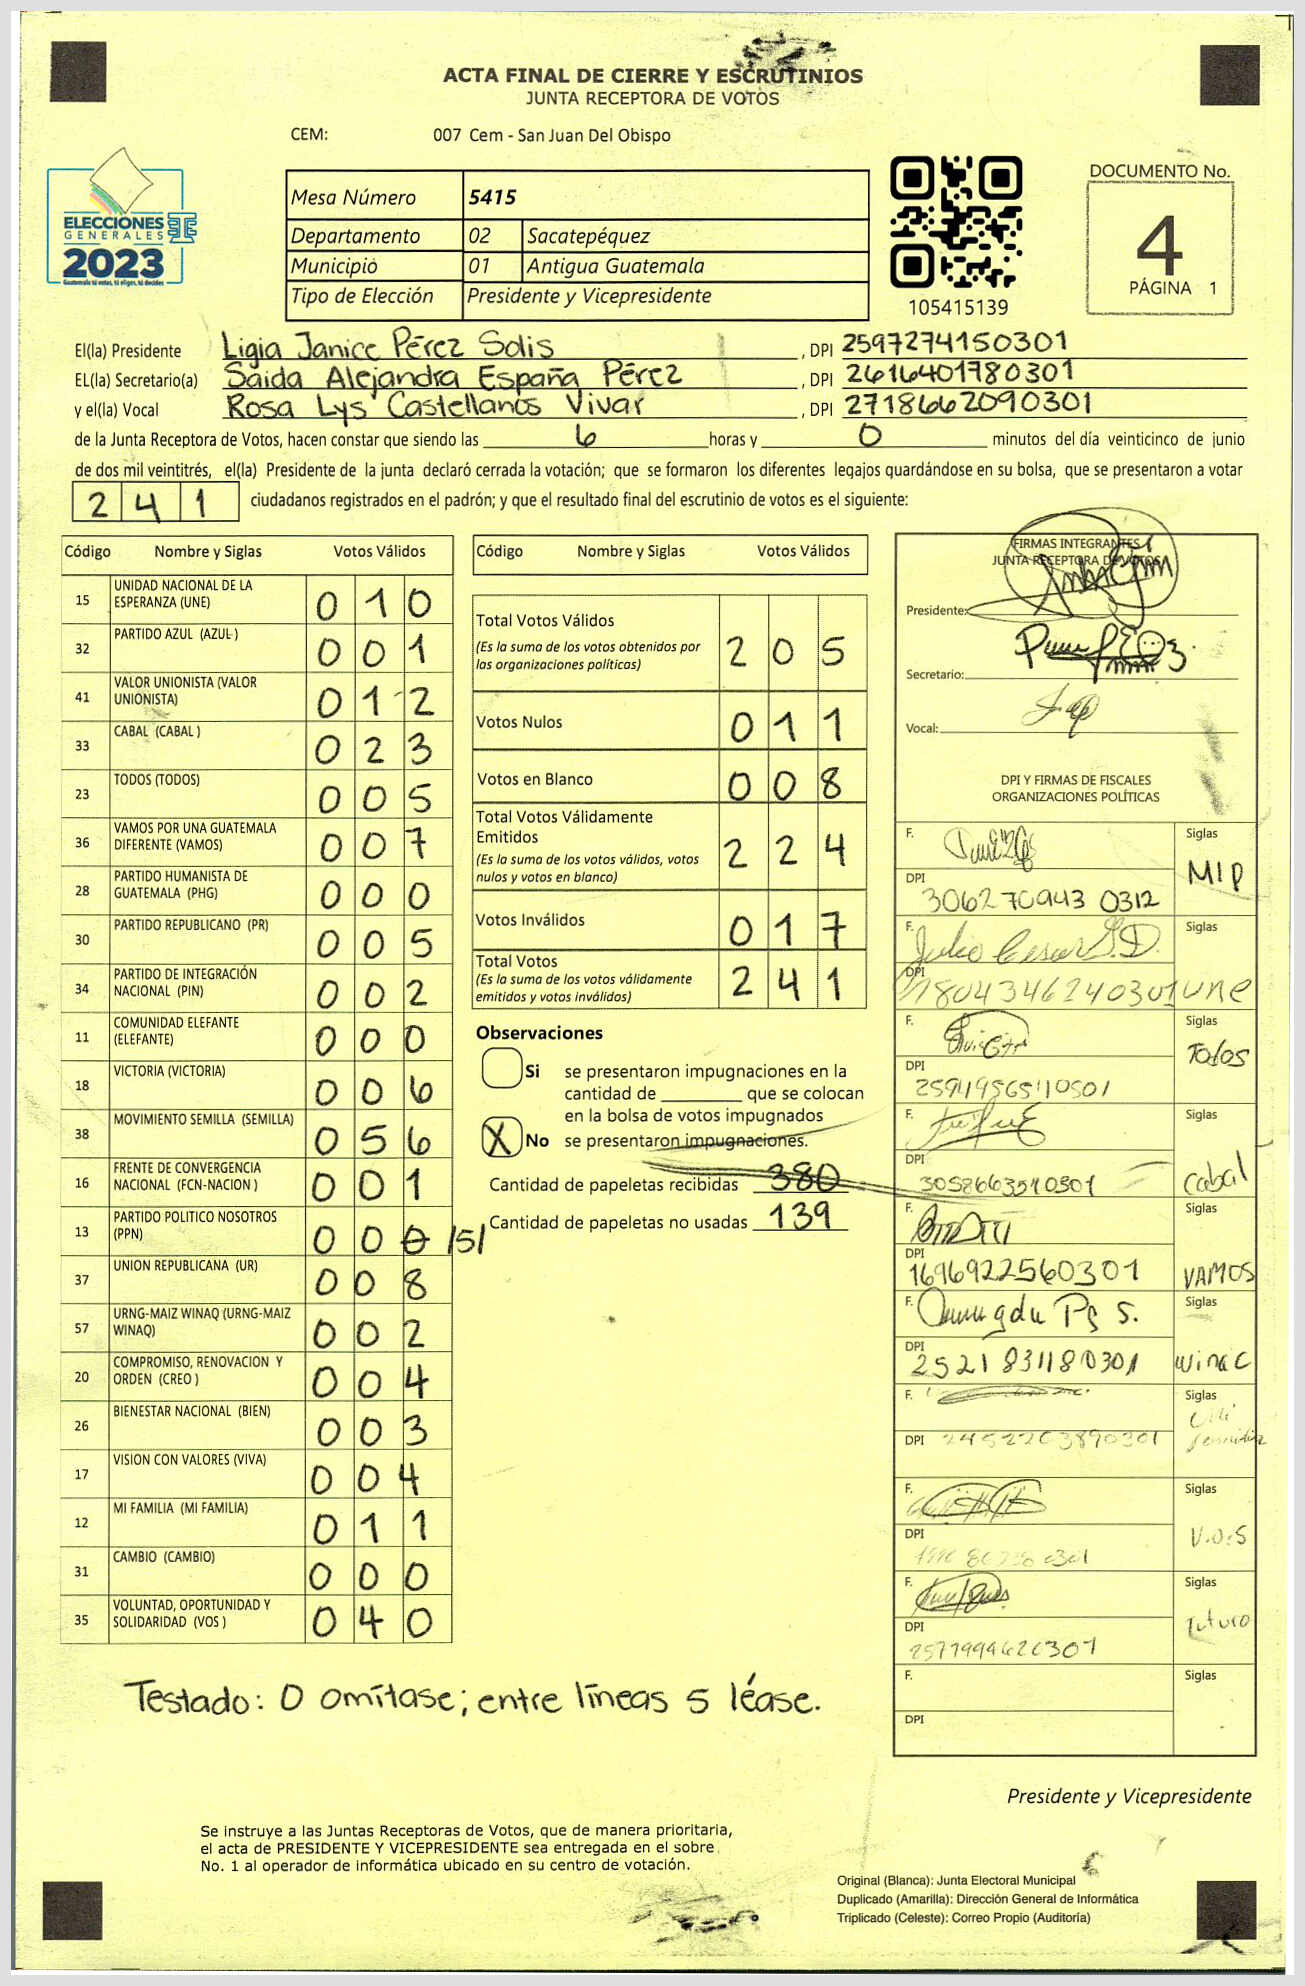 ACTA FINAL DE CIERRE Y ESCRUTINIOS
JUNTA RECEPTORA DE VOTOS
CEM: 007 Cem - San Juan Del Obispo
ELECCIONES
GENERALES
2023
Guatemala tú votas, tú eliges, tú decides
Mesa Número 5415
Departamento 02 Sacatepéquez
Municipio 01 Antigua Guatemala
Tipo de Elección Presidente y Vicepresidente
105415139
DOCUMENTO No.
4
PÁGINA 1
El(la) Presidente Ligia Janice Pérez Solis, DPI 2597274150301
EL(la) Secretario(a) Saida Alejandra España Pérez, DPI 2616401780301
y el(la) Vocal Rosa Lys Castellanos Vivar, DPI 2718662090301
de la Junta Receptora de Votos, hacen constar que siendo las 6 horas y 0 minutos del día veinticinco de junio
de dos mil veintitrés, el(la) Presidente de la junta declaró cerrada la votación; que se formaron los diferentes legajos quardándose en su bolsa, que se presentaron a votar
241 ciudadanos registrados en el padrón; y que el resultado final del escrutinio de votos es el siguiente:
Código Nombre y Siglas Votos Válidos
15 UNIDAD NACIONAL DE LA ESPERANZA (UNE) 010
32 PARTIDO AZUL (AZUL) 001
41 VALOR UNIONISTA (VALOR UNIONISTA) 012
33 CABAL (CABAL ) 023
23 TODOS (TODOS) 005
36 VAMOS POR UNA GUATEMALA DIFERENTE (VAMOS) 007
28 PARTIDO HUMANISTA DE GUATEMALA (PHG) 000
30 PARTIDO REPUBLICANO (PR) 005
34 PARTIDO DE INTEGRACIÓN NACIONAL (PIN) 002
11 COMUNIDAD ELEFANTE (ELEFANTE) 000
18 VICTORIA (VICTORIA) 006
38 MOVIMIENTO SEMILLA (SEMILLA) 056
16 FRENTE DE CONVERGENCIA NACIONAL (FCN-NACION ) 001
13 PARTIDO POLITICO NOSOTROS (PPN) 000 /5/
37 UNION REPUBLICANA (UR) 008
57 URNG-MAIZ WINAQ (URNG-MAIZ WINAQ) 002
20 COMPROMISO, RENOVACION Y ORDEN (CREO ) 004
26 BIENESTAR NACIONAL (BIEN) 003
17 VISION CON VALORES (VIVA) 004
12 MI FAMILIA (MI FAMILIA) 011
31 CAMBIO (CAMBIO) 000
35 VOLUNTAD, OPORTUNIDAD Y SOLIDARIDAD (VOS ) 040
Código Nombre y Siglas Votos Válidos
Total Votos Válidos 205
(Es la suma de los votos obtenidos por
las organizaciones políticas)
Votos Nulos 011
Votos en Blanco 008
Total Votos Válidamente
Emitidos 224
(Es la suma de los votos válidos, votos
nulos y votos en blanco)
Votos Inválidos 017
Total Votos 241
(Es la suma de los votos válidamente
emitidos y votos inválidos)
Observaciones
Si se presentaron impugnaciones en la
cantidad de ________ que se colocan
en la bolsa de votos impugnados
X No se presentaron impugnaciones.
Cantidad de papeletas recibidas 380
Cantidad de papeletas no usadas 139
FIRMAS INTEGRANTES
JUNTA RECEPTORA DE VOTOS
Presidente:
Secretario:
Vocal:
DPI Y FIRMAS DE FISCALES
ORGANIZACIONES POLÍTICAS
F. Siglas MLP
DPI 3062709430312
F. Julio Cesar Siglas
DPI 1804346240301 une
F. Siglas Todos
DPI
F. Siglas
DPI 3058663510301 Cabal
F. Siglas
DPI 1696922560301 VAMOS
F. Siglas
DPI 2521831180301 winaC
F. Siglas
DPI
F. Siglas V.O.S
DPI
F. Siglas
DPI
F. Siglas
DPI
Testado: 0 omítase; entre líneas 5 léase.
Presidente y Vicepresidente
Se instruye a las Juntas Receptoras de Votos, que de manera prioritaria,
el acta de PRESIDENTE Y VICEPRESIDENTE sea entregada en el sobre
No. 1 al operador de informática ubicado en su centro de votación.
Original (Blanca): Junta Electoral Municipal
Duplicado (Amarilla): Dirección General de Informática
Triplicado (Celeste): Correo Propio (Auditoría)